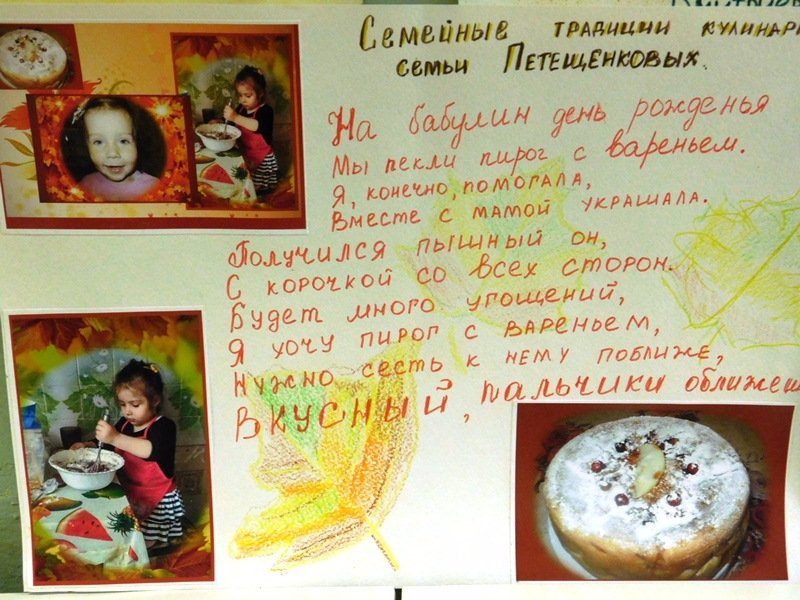 Семейные традиции кулинар
семьи Петещенковых.
На бабулин день рожденья
Мы пекли пирог с вареньем.
Я, конечно, помогала,
Вместе с мамой украшала.
Получился пышный он,
С корочкой со всех сторон.
Будет много угощений,
Я хочу пирог с вареньем,
Нужно сесть к нему поближе,
Вкусный, пальчики оближеш